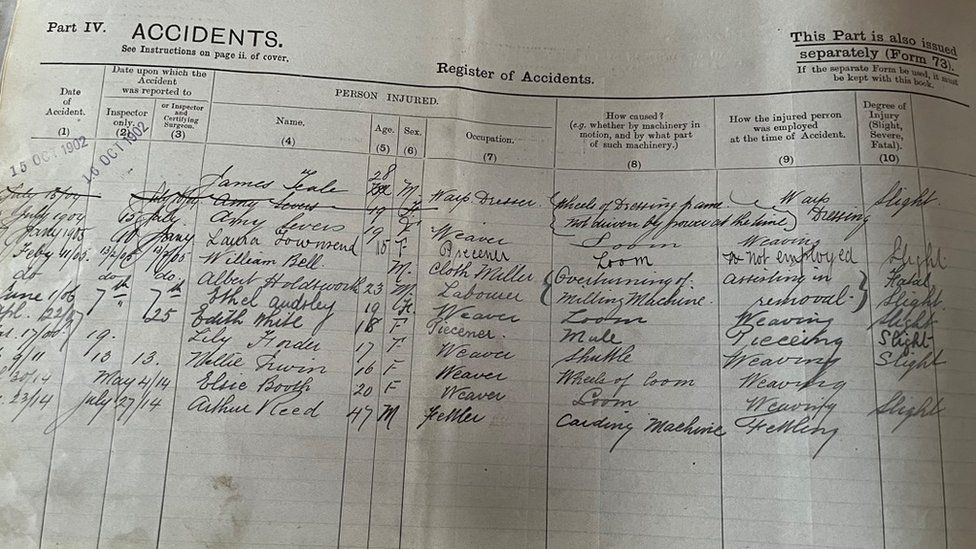 Part IV. ACCIDENTS.
See Instructions on page ii. of cover.
This Part is also issued
separately (Form 73).
If the separate Form be used, it must
be kept with this book.
Register of Accidents.
Date of Accident. (1)
Date upon which the Accident was reported to
Inspector only. (2)
or Inspector and Certifying Surgeon. (3)
PERSON INJURED.
Name. (4)
Age. (5)
Sex. (6)
Occupation. (7)
How caused? (e.g. whether by machinery in motion, and by what part of such machinery.) (8)
How the injured person was employed at the time of Accident. (9)
Degree of Injury (Slight, Severe, Fatal). (10)
15 OCT 1902 16 OCT 1902
James Teale 28 M Warp Dresser Wheels of Dressing frame Warp Slight
Amy Severs 19 F not driven by power at the time Dressing
July 1904 15 July Amy Severs 19 F Weaver Loom Weaving
Jany 1905 Jany Laura Townsend 18 F Piecener Loom not employed Slight
Feby 11/05 13/2/05 13/2/05 William Bell M. Cloth Miller Overturning of assisting in Fatal
do do do. Albert Holdsworth 23 M Labourer Milling Machine removal Slight
June 1/06 7th 7th Ethel Audsley 19 F Weaver Loom Weaving Slight
22 25 Edith White 18 F Piecener. Mule Piecening Slight
17/06 19. Lily 17 F Weaver Shuttle Weaving Slight
9/11 13 13. Nellie Irwin 16 F Weaver Wheels of loom Weaving
30/14 May 4/14 Elsie Booth 20 F Weaver Loom Weaving Slight
23/14 July 27/14 Arthur Reed 47 M Fettler Carding Machine Fettling